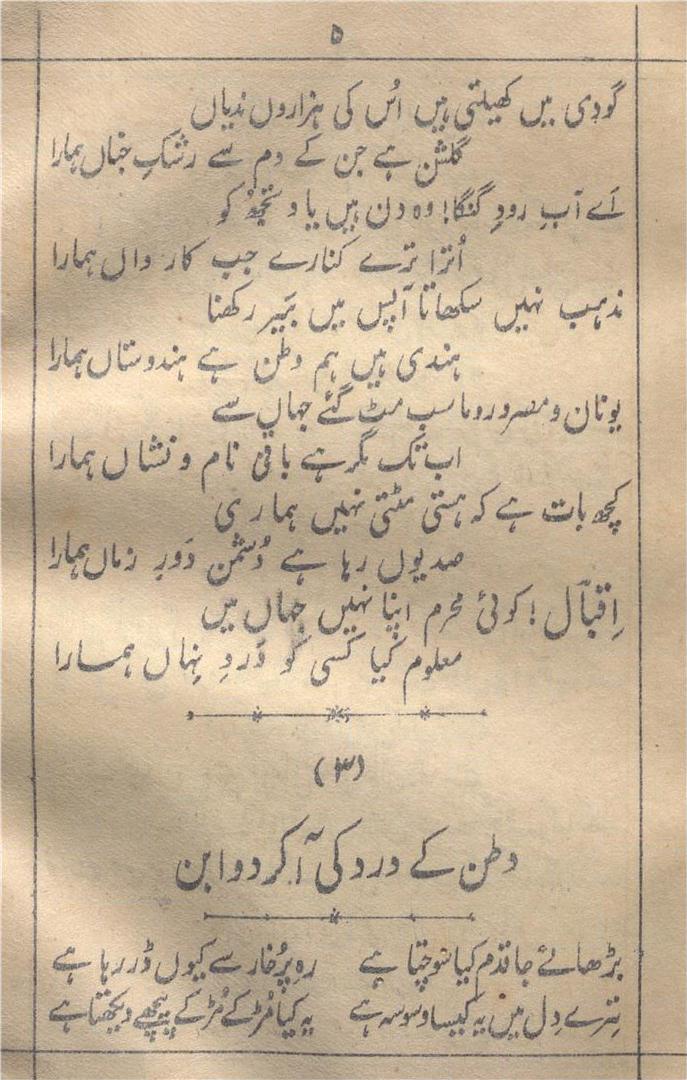 ۵
گودی میں کھیلتی ہیں اُس کی ہزاروں ندیاں
گلشن ہے جن کے دم سے رشکِ جناں ہمارا
اَے آبِ رودِ گنگا! وہ دن ہیں یاد تجھ کو
اُترا ترے کنارے جب کارواں ہمارا
مذہب نہیں سکھاتا آپس میں بَیر رکھنا
ہندی ہیں ہم وطن ہے ہندوستاں ہمارا
یونان و مصر و روما سب مٹ گئے جہاں سے
اب تک مگر ہے باقی نام و نشاں ہمارا
کچھ بات ہے کہ ہستی مٹتی نہیں ہماری
صدیوں رہا ہے دُشمن دَورِ زماں ہمارا
اِقبالؔ! کوئی محرم اپنا نہیں جہاں میں
معلوم کیا کسی کو دَردِ نِہاں ہمارا
(۳)
وطن کے درد کی آ کر دوا بن
بڑھائے جا قدم کیا سوچتا ہے رہِ پُرخار سے کیوں ڈر رہا ہے
تِرے دِل میں یہ کیسا وسوسہ ہے یہ کیا مُڑ کے مُڑ کے پیچھے دیکھتا ہے